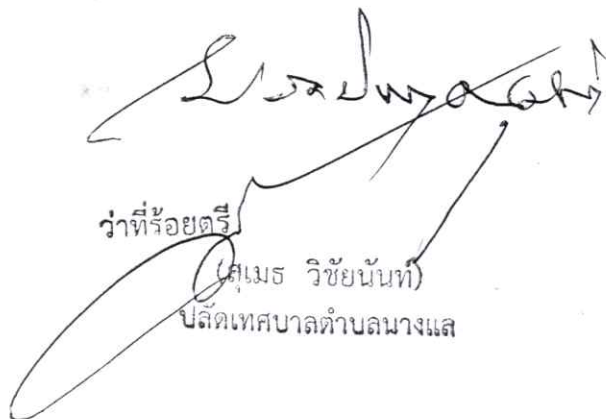 ว่าที่ร้อยตรี
(สุเมธ วิชัยนันท์)
ปลัดเทศบาลตำบลนางแล